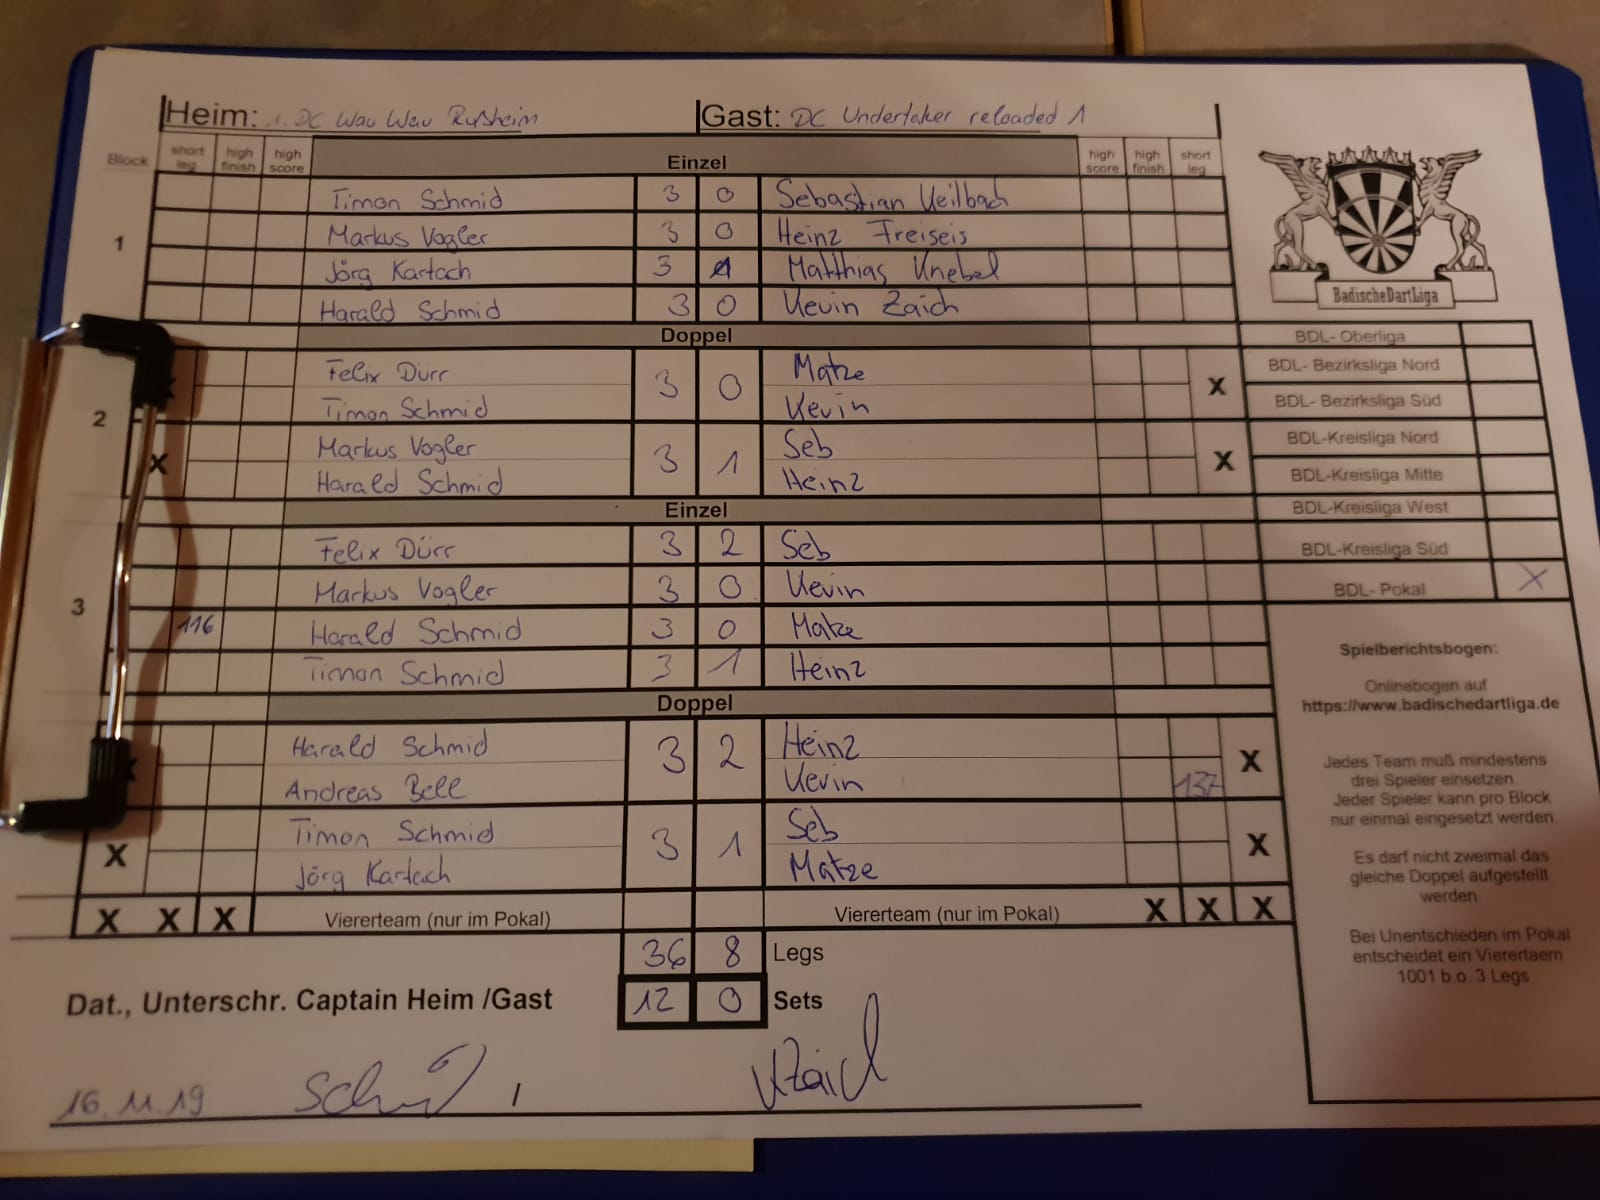 Heim: 1. DC Wau Wau Rußheim Gast: DC Undertaker reloaded 1
Block short leg high finish high score Einzel high score high finish short leg
Timon Schmid 3 0 Sebastian Keilbach
Markus Vogler 3 0 Heinz Freiseis
1
Jörg Kartach 3 1 Matthias Knebel
Harald Schmid 3 0 Kevin Zaich
BadischeDartLiga
Doppel
BDL- Oberliga
Felix Dürr 3 0 Matze
X
BDL- Bezirksliga Nord
Timon Schmid Kevin
BDL- Bezirksliga Süd
2
Markus Vogler 3 1 Seb
BDL-Kreisliga Nord
X X
Harald Schmid Heinz
BDL-Kreisliga Mitte
Einzel
BDL-Kreisliga West
Felix Dürr 3 2 Seb
BDL-Kreisliga Süd
Markus Vogler 3 0 Kevin
BDL- Pokal X
3
116 Harald Schmid 3 0 Matze
Timon Schmid 3 1 Heinz
Doppel
Harald Schmid 3 2 Heinz
X
Andreas Bell Kevin 137
Timon Schmid 3 1 Seb
X X
Jörg Kartach Matze
X X X Viererteam (nur im Pokal) Viererteam (nur im Pokal) X X X
36 8 Legs
Dat., Unterschr. Captain Heim /Gast 12 0 Sets
16.11.19 KZaich
Spielberichtsbogen:
Onlinebogen auf
https://www.badischedartliga.de
Jedes Team muß mindestens
drei Spieler einsetzen.
Jeder Spieler kann pro Block
nur einmal eingesetzt werden.
Es darf nicht zweimal das
gleiche Doppel aufgestellt
werden.
Bei Unentschieden im Pokal
entscheidet ein Vierertaem
1001 b.o. 3 Legs